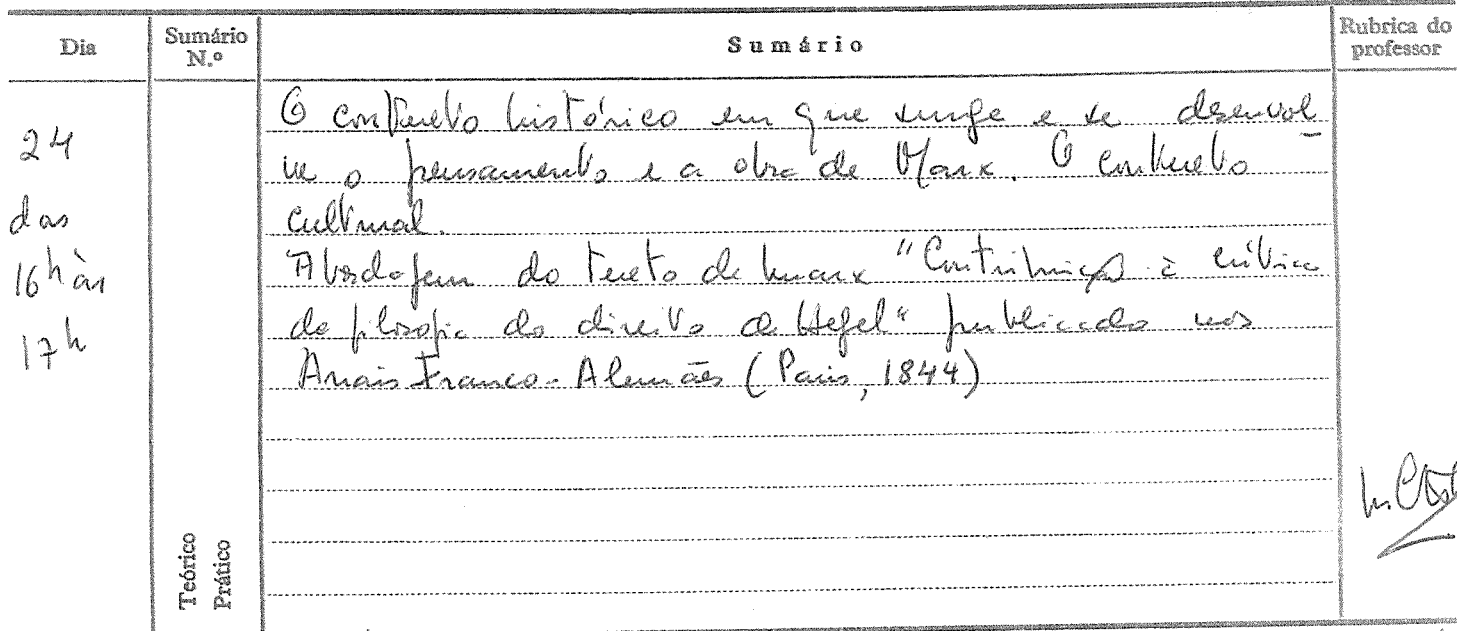 Dia
Sumário N.º
Sumário
Rubrica do professor
24
das
16h às
17h
O contexto histórico em que surge e se desenvol-
ve o pensamento e a obra de Marx. O contexto
cultural.
Abordagem do texto de Marx "Contribuição à crítica
da filosofia do direito de Hegel" publicado nos
Anais Franco-Alemães (Paris, 1844)
Teórico
Prático